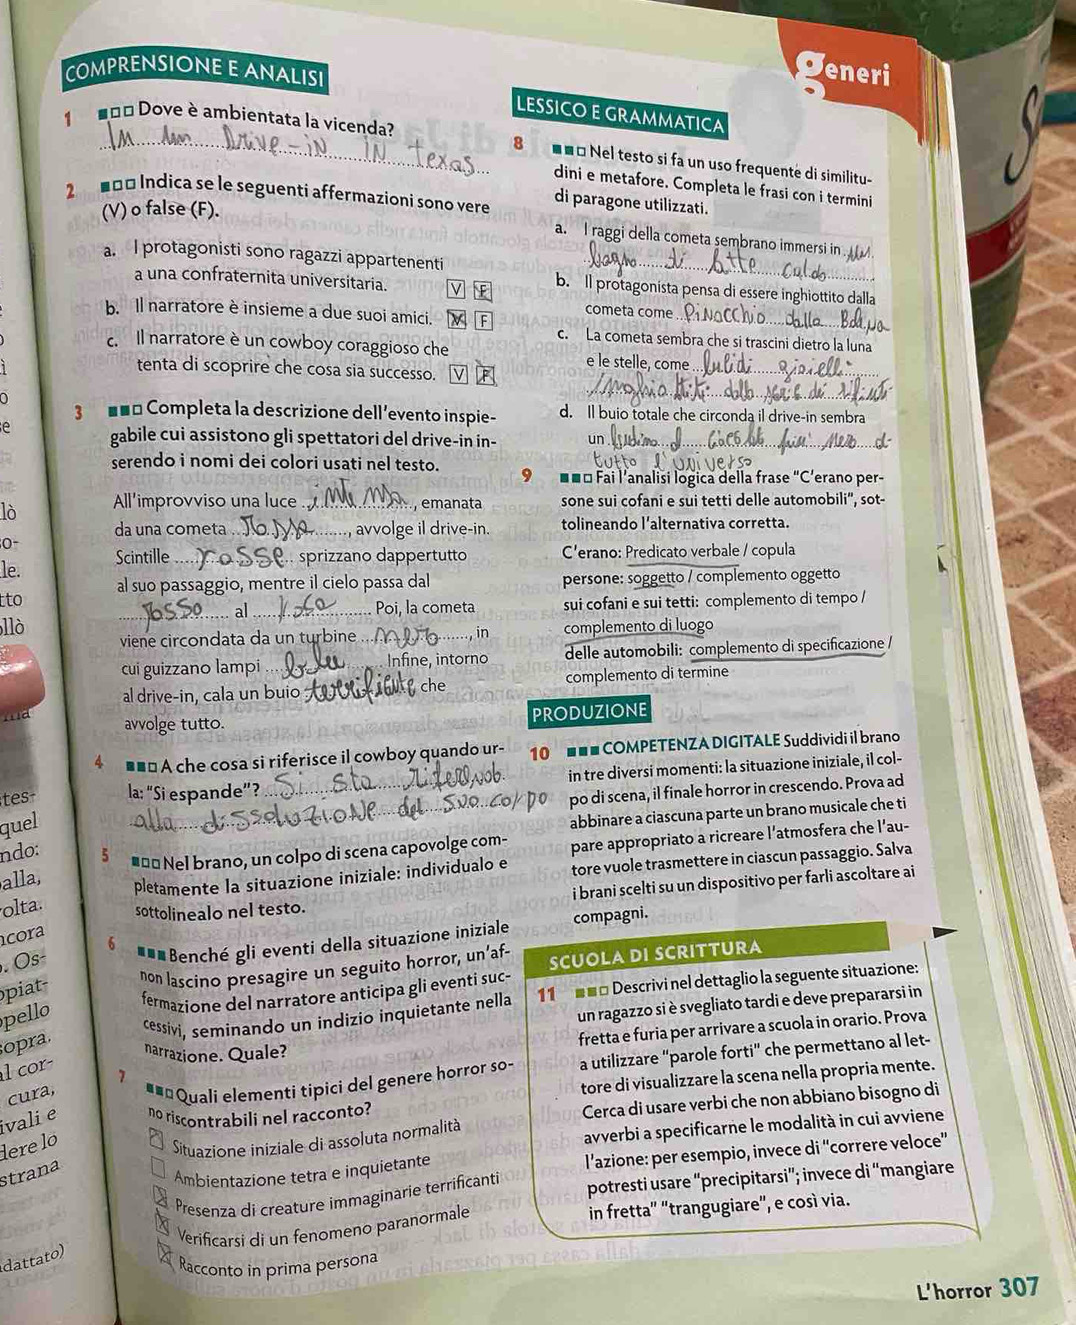 generi
COMPRENSIONE E ANALISI
1 Dove è ambientata la vicenda?
In un Drive-iN iN texas
2 Indica se le seguenti affermazioni sono vere
(V) o false (F).
a. I protagonisti sono ragazzi appartenenti
a una confraternita universitaria. V F
b. Il narratore è insieme a due suoi amici. V F
c. Il narratore è un cowboy coraggioso che
tenta di scoprire che cosa sia successo. V F
3 Completa la descrizione dell'evento inspie-
gabile cui assistono gli spettatori del drive-in in-
serendo i nomi dei colori usati nel testo.
All'improvviso una luce ........, emanata
da una cometa ........, avvolge il drive-in.
Scintille rosse sprizzano dappertutto
al suo passaggio, mentre il cielo passa dal
........ al ........ Poi, la cometa
viene circondata da un turbine ........, in
cui guizzano lampi ........ Infine, intorno
al drive-in, cala un buio ........ che
avvolge tutto.
4 A che cosa si riferisce il cowboy quando ur-
la: "Si espande"? Si sta
alla dissoluzioNe del suo corpo
5 Nel brano, un colpo di scena capovolge com-
pletamente la situazione iniziale: individualo e
sottolinealo nel testo.
6 Benché gli eventi della situazione iniziale
non lascino presagire un seguito horror, un'af-
fermazione del narratore anticipa gli eventi suc-
cessivi, seminando un indizio inquietante nella
narrazione. Quale?
7 Quali elementi tipici del genere horror so-
no riscontrabili nel racconto?
Situazione iniziale di assoluta normalità
Ambientazione tetra e inquietante
Presenza di creature immaginarie terrificanti
Verificarsi di un fenomeno paranormale
Racconto in prima persona
LESSICO E GRAMMATICA
8 Nel testo si fa un uso frequente di similitu-
dini e metafore. Completa le frasi con i termini
di paragone utilizzati.
a. I raggi della cometa sembrano immersi in un
bagno di latte caldo
b. Il protagonista pensa di essere inghiottito dalla
cometa come PiNocchio dalla Balena
c. La cometa sembra che si trascini dietro la luna
e le stelle, come gioielli
d. Il buio totale che circonda il drive-in sembra
un
tutto l'universo
9 Fai l'analisi logica della frase "C'erano per-
sone sui cofani e sui tetti delle automobili", sot-
tolineando l'alternativa corretta.
C'erano: Predicato verbale / copula
persone: soggetto / complemento oggetto
sui cofani e sui tetti: complemento di tempo /
complemento di luogo
delle automobili: complemento di specificazione /
complemento di termine
PRODUZIONE
10 COMPETENZA DIGITALE Suddividi il brano
in tre diversi momenti: la situazione iniziale, il col-
po di scena, il finale horror in crescendo. Prova ad
abbinare a ciascuna parte un brano musicale che ti
pare appropriato a ricreare l'atmosfera che l'au-
tore vuole trasmettere in ciascun passaggio. Salva
i brani scelti su un dispositivo per farli ascoltare ai
compagni.
SCUOLA DI SCRITTURA
11 Descrivi nel dettaglio la seguente situazione:
un ragazzo si è svegliato tardi e deve prepararsi in
fretta e furia per arrivare a scuola in orario. Prova
a utilizzare "parole forti" che permettano al let-
tore di visualizzare la scena nella propria mente.
Cerca di usare verbi che non abbiano bisogno di
avverbi a specificarne le modalità in cui avviene
l'azione: per esempio, invece di "correre veloce"
potresti usare "precipitarsi"; invece di "mangiare
in fretta" "trangugiare", e così via.
L'horror 307
lò
o-
le.
tto
llò
tes-
quel
ndo:
alla,
olta.
ncora
. Os-
piat-
pello
sopra.
l cor-
cura,
ivali e
dere lo
strana
dattato)